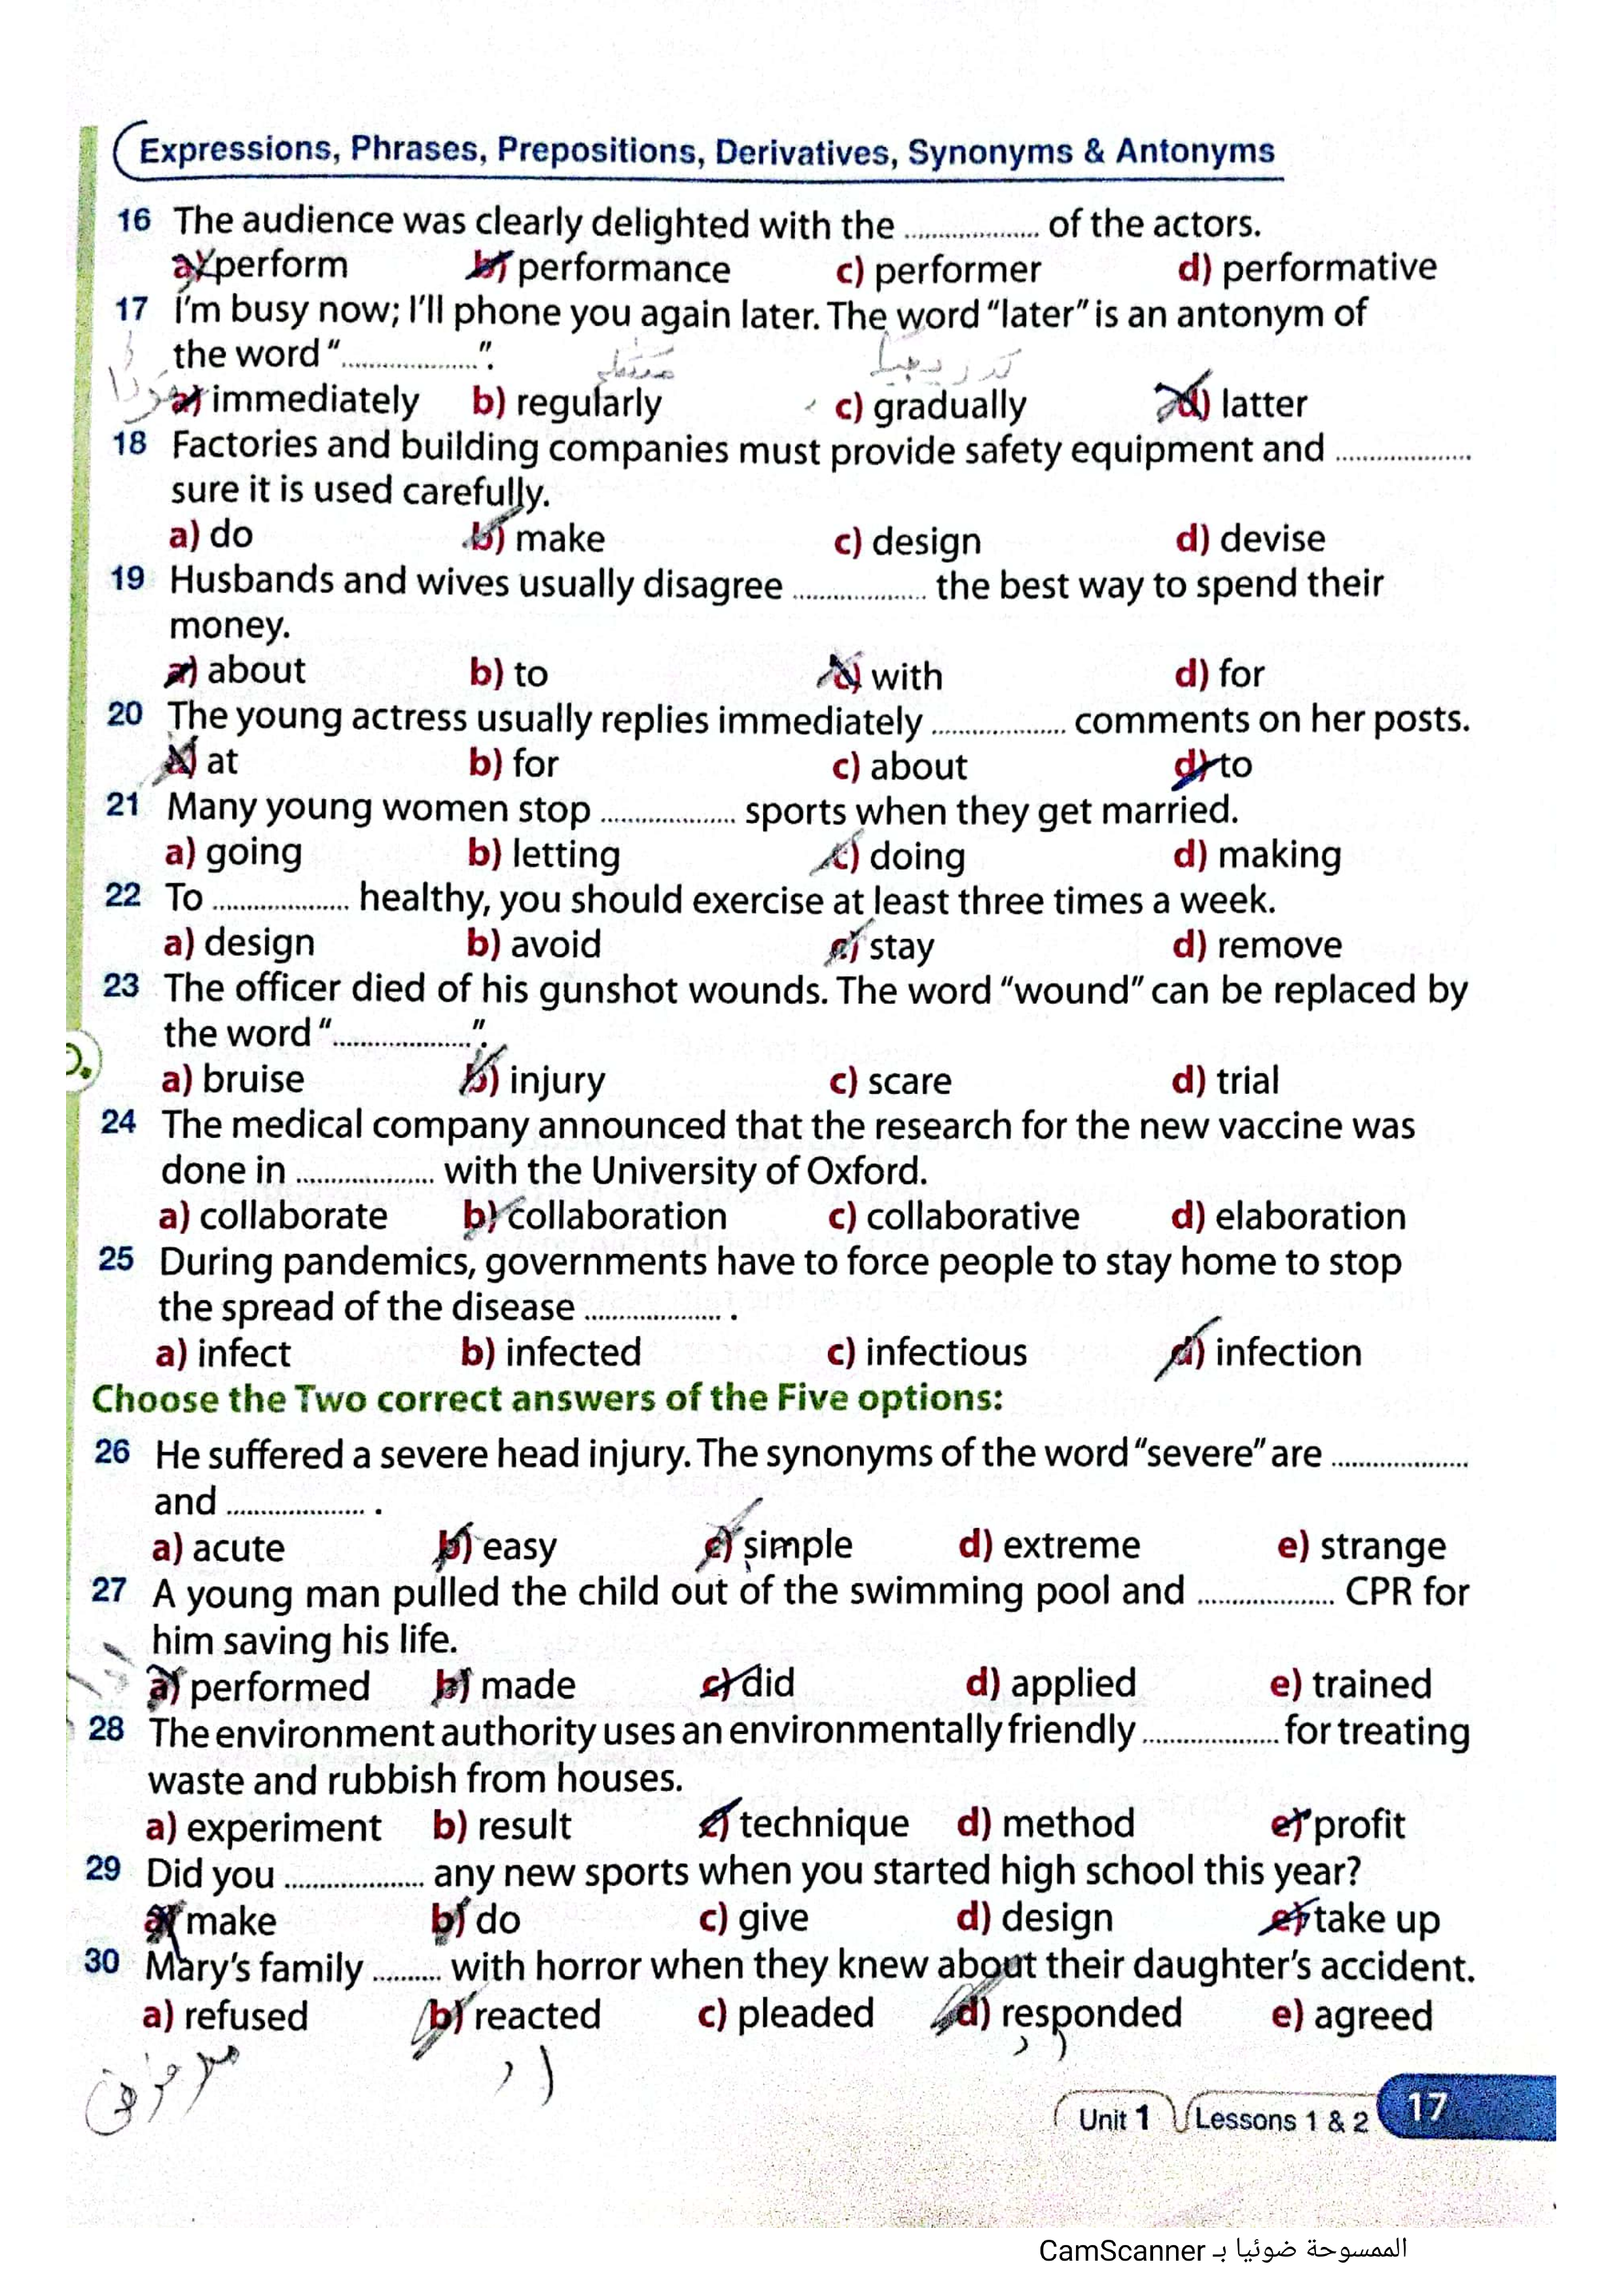 Expressions, Phrases, Prepositions, Derivatives, Synonyms & Antonyms
16 The audience was clearly delighted with the .................. of the actors.
a) perform b) performance c) performer d) performative
17 I'm busy now; I'll phone you again later. The word "later" is an antonym of
the word "..................".
a) immediately b) regularly c) gradually d) latter
18 Factories and building companies must provide safety equipment and ..................
sure it is used carefully.
a) do b) make c) design d) devise
19 Husbands and wives usually disagree .................. the best way to spend their
money.
a) about b) to c) with d) for
20 The young actress usually replies immediately .................. comments on her posts.
a) at b) for c) about d) to
21 Many young women stop .................. sports when they get married.
a) going b) letting c) doing d) making
22 To .................. healthy, you should exercise at least three times a week.
a) design b) avoid c) stay d) remove
23 The officer died of his gunshot wounds. The word "wound" can be replaced by
the word "..................".
a) bruise b) injury c) scare d) trial
24 The medical company announced that the research for the new vaccine was
done in .................. with the University of Oxford.
a) collaborate b) collaboration c) collaborative d) elaboration
25 During pandemics, governments have to force people to stay home to stop
the spread of the disease .................. .
a) infect b) infected c) infectious d) infection
Choose the Two correct answers of the Five options:
26 He suffered a severe head injury. The synonyms of the word "severe" are ..................
and .................. .
a) acute b) easy c) simple d) extreme e) strange
27 A young man pulled the child out of the swimming pool and .................. CPR for
him saving his life.
a) performed b) made c) did d) applied e) trained
28 The environment authority uses an environmentally friendly .................. for treating
waste and rubbish from houses.
a) experiment b) result c) technique d) method e) profit
29 Did you .................. any new sports when you started high school this year?
a) make b) do c) give d) design e) take up
30 Mary's family ......... with horror when they knew about their daughter's accident.
a) refused b) reacted c) pleaded d) responded e) agreed
Unit 1 Lessons 1 & 2 17
الممسوحة ضوئيا بـ CamScanner